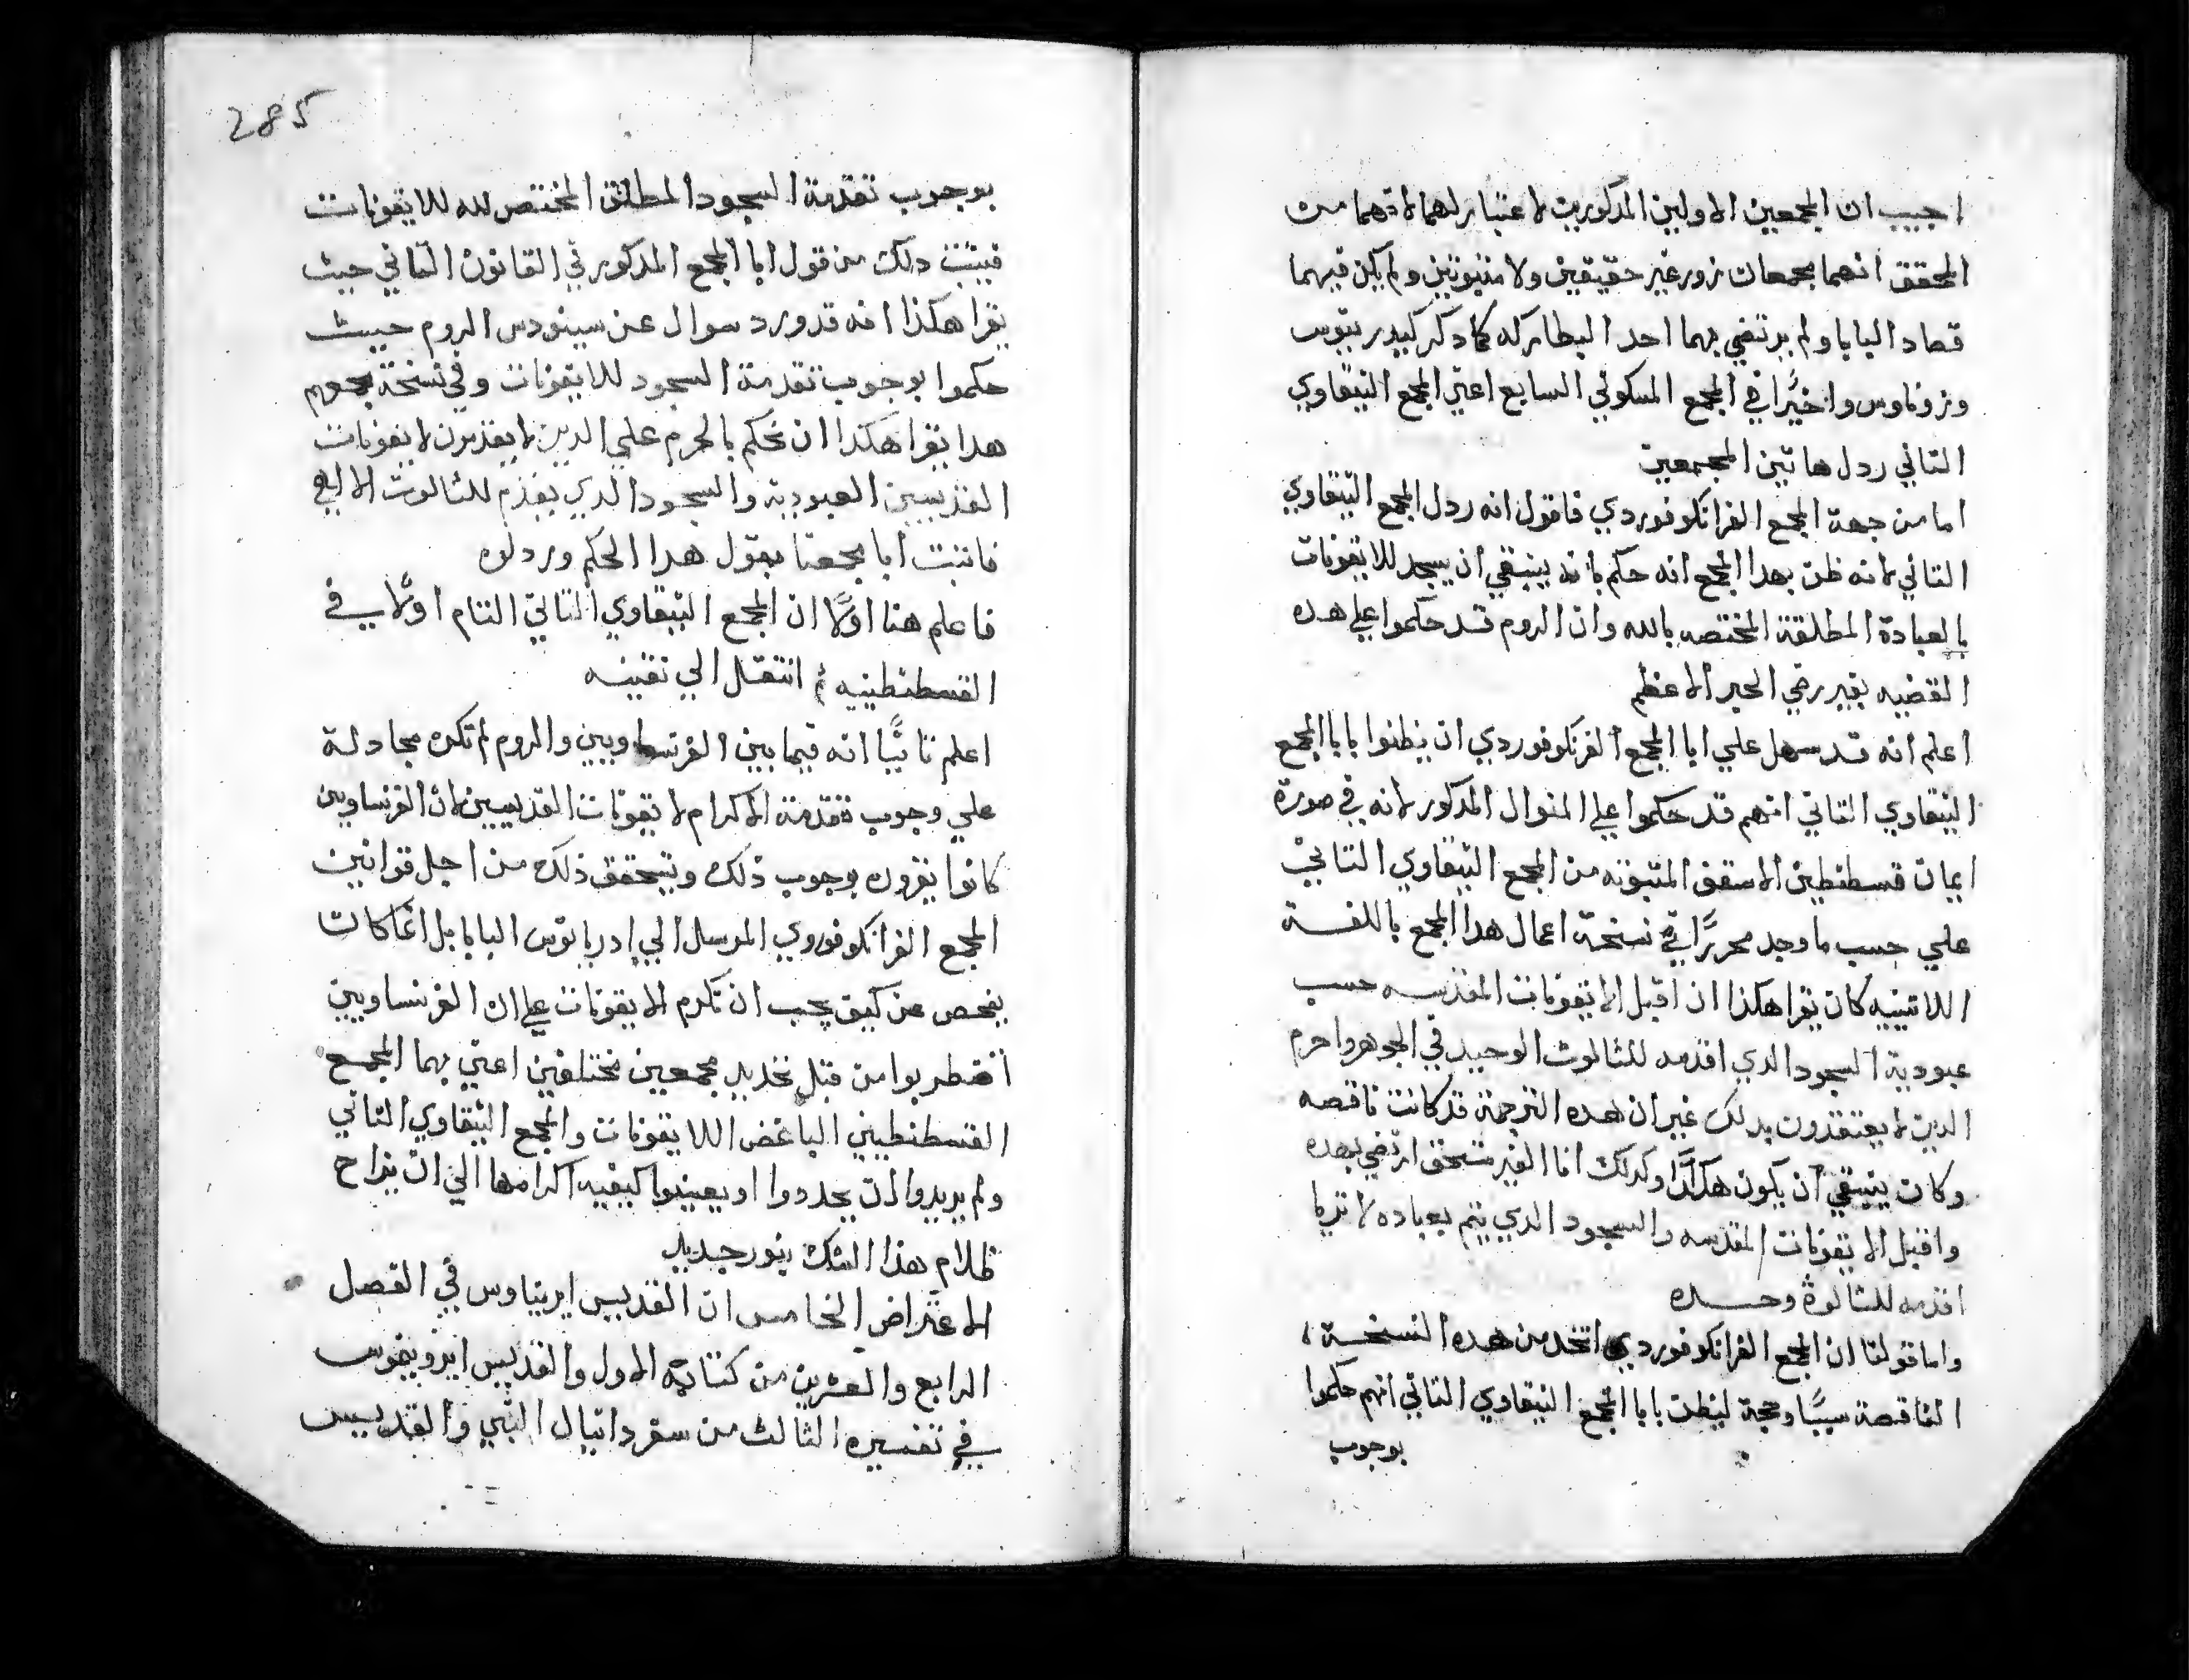 اجيب ان المجمعين الاولين المدكورين لا اعتبار لهما لانهما من
المحقق انهما مجمعان زور غير حقيقيين ولا مثبوتين ولم يكن فيهما
قصاد البابا ولم يرتضي بهما احد البطاركه كما دكر كيدرينوس
وزوناوس واخيرًا في المجمع المسكوني السابع اعني المجمع النيقاوي
التاني ردل هاتين المجمعين
اما من جهة المجمع الفرانكوفوردي فاقول انه ردل المجمع النيقاوي
التاني لانه ظن بهدا المجمع انه حكم بانه ينبغي ان يسجد للايقونات
بالعبادة المطلقة المختصه بالله وان الروم قد حكموا علي هده
القضيه بغير رضي الحبر الاعظم
اعلم انه قد سهل علي ابا المجمع الفرنكوفوردي ان يظنوا بابا المجمع
النيقاوي التاني انهم قد حكموا علي المنوال المدكور لانه في صورة
ايمان قسطنطين الاسقف المتبوته من المجمع النيقاوي التاني
علي حسب ما وجد محررًا في نسخة اعمال هدا المجمع باللغة
اللاتينيه كان يقرا هكذا ان اقبل الايقونات المقدسه حسب
عبودية السجود الدي اقدمه للثالوث الوحيد في الجوهر واحرم
الدين لا يعتقدون بدلك غير ان هده الترجمة قد كانت ناقصه
وكان ينبغي ان يكون هكدا وكدلك انا الغير مستحق ارتضي بهده
واقبل الايقونات المقدسه والسجود الدي يتم بعباده لاتريا
اقدمه للثالوث وحده
واما قولنا ان المجمع الفرانكوفوردي اتخد من هده النسخة
الناقصة سببًا وحجة ليظن بابا المجمع النيقاوي التاني انهم حكموا
بوجوب
285
بوجوب تقدمة السجود المطلق المختص لله للايقونات
فيثبت دلك من قول ابا المجمع المدكور في القانون التاني حيث
يقرا هكذا انه قد ورد سوال عن سينودس الروم حيث
حكموا بوجوب تقدمة السجود للايقونات وفي نسخة مجمعهم
هدا يقرا هكدا ان نحكم بالحرم علي الدين لا يقدمون لايقونات
القديسين العبودية والسجود الدي يقدم للثالوث الالهي
فانبت ابا مجمعنا بقول هدا الحكم وردلوه
فاعلم هنا اولًا ان المجمع النيقاوي التاني التام اولًا في
القسطنطينيه ثم انتقل الي نيقيه
اعلم تانيًا انه فيما بين الفرنساويين والروم لم تكن مجادلة
علي وجوب تقدمة الاكرام لايقونات القديسين لان الفرنساوين
كانوا يقرون بوجوب ذلك ويتحقق ذلك من اجل قوانين
المجمع الفرانكوفوردي المرسل الي ادريانوس البابا بل انما كان
يفحص عن كيف يجب ان تكرم الايقونات علي ان الفرنساويين
اضطربوا من قبل تحديد مجمعين مختلفين اعني بهما المجمع
القسطنطيني الباغض للايقونات والمجمع النيقاوي التاني
ولم يريدوا ان يحددوا او يعينوا كيفيه اكرامها الي ان يزاح
ظلام هذا الشك بنور جديد
الاعتراض الخامس ان القديس ايريناوس في الفصل
الرابع والعشرين من كتابه الاول والقديس ايرونيموس
في تفسيره الثالث من سفر دانيال النبي والقديس